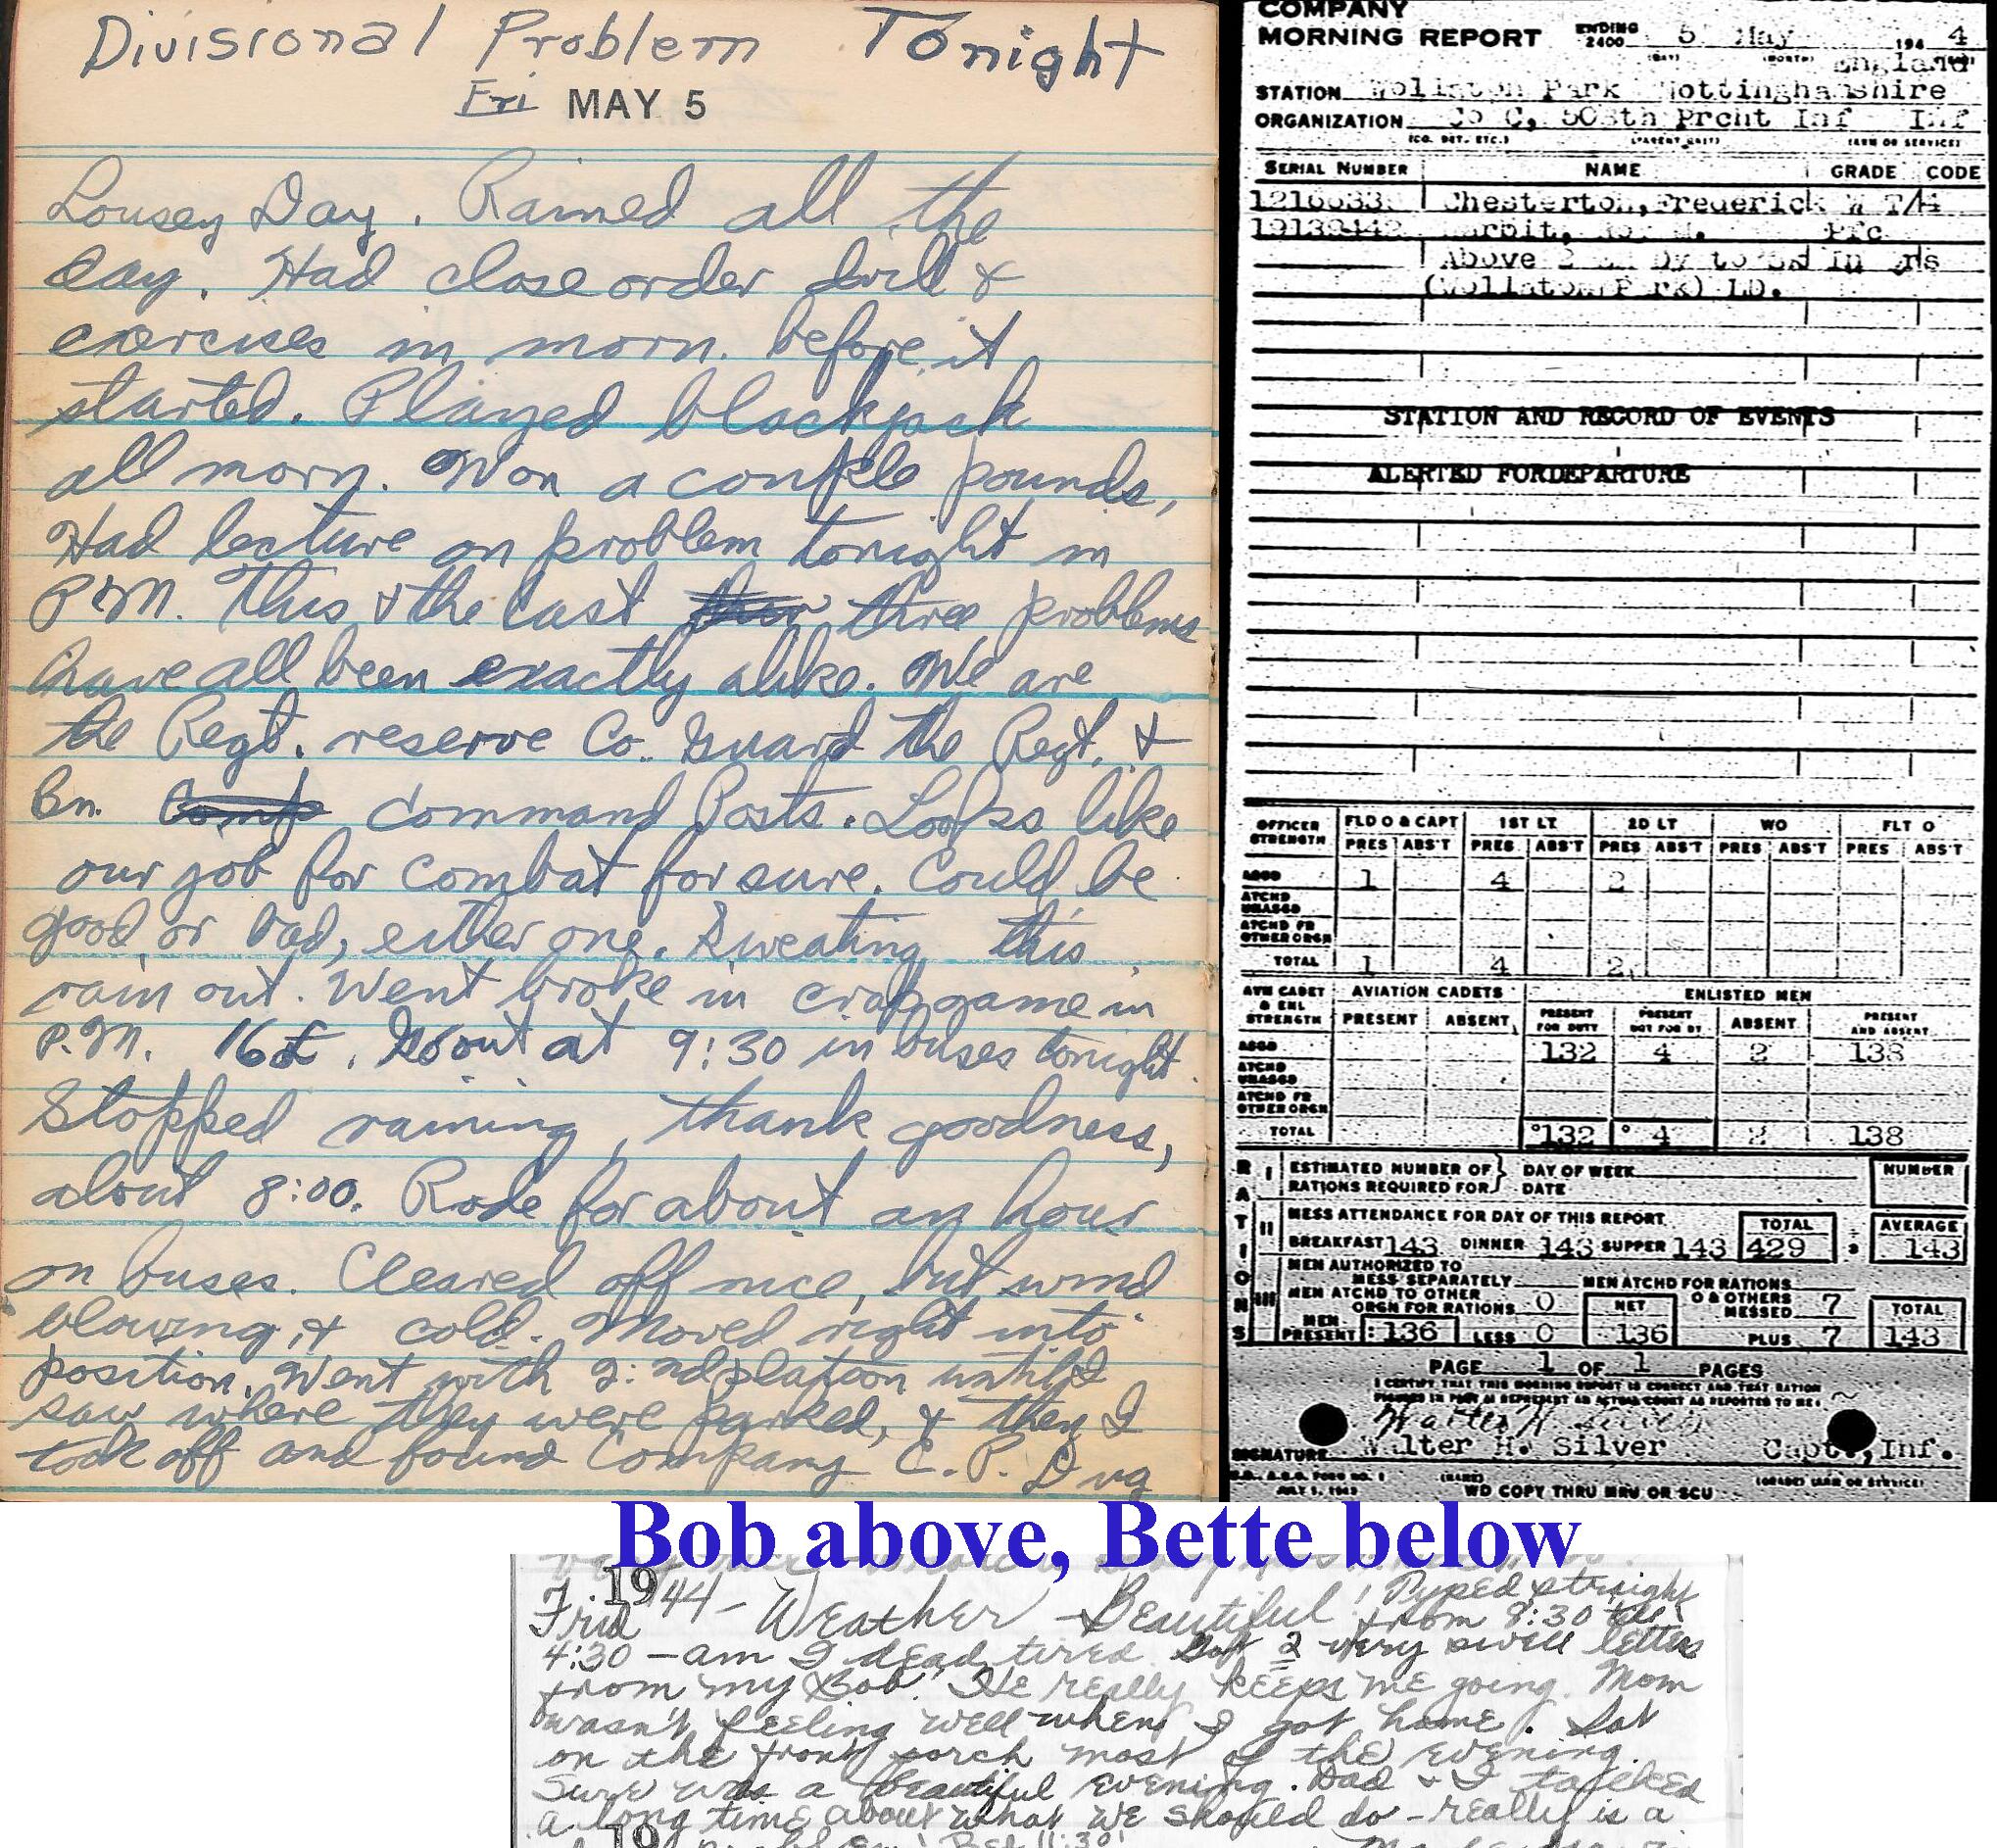 Divisional Problem Tonight
Fri MAY 5
Lousey Day. Rained all the
day. Had close order drill &
exercises in morn. before it
started. Played blackjack
all morn. Won a couple pounds,
Had lecture on problem tonight in
P.M. This & the last three problems
have all been exactly alike. We are
the Regt. reserve Co. Guard the Regt. &
Bn. Command Posts. Looks like
our job for combat for sure. Could be
good or bad, either one. Sweating this
rain out. Went broke in crap game in
P.M. 16£. Go out at 9:30 in buses tonight.
Stopped raining, thank goodness,
about 8:00. Rode for about an hour
on buses. Cleared off nice, but wind
blowing & cold. Moved right into
position. Went with 2:nd platoon until I
saw where they were parked, & then I
took off and found Company C.P. Dug
COMPANY
MORNING REPORT ENDING 2400 5 May 194 4
(DAY) (MONTH)
England
STATION Wollaton Park Nottinghamshire
ORGANIZATION Co C, 508th Prcht Inf Inf
(CO. DET. ETC.) (PARENT UNIT) (ARM OR SERVICE)
SERIAL NUMBER NAME GRADE CODE
Chesterton, Frederick W T/4
Pfc
Above 2 Dy to Sk in Qrs
(Wollaton Park) LD.
STATION AND RECORD OF EVENTS
ALERTED FORDEPARTURE
OFFICER STRENGTH FLD O & CAPT 1ST LT 2D LT WO FLT O
PRES ABS'T PRES ABS'T PRES ABS'T PRES ABS'T PRES ABS'T
ASGD 1 4 2
ATCHD UNASGD
ATCHD FR OTHER ORGN
TOTAL 1 4 2
AVN CADET & ENL STRENGTH AVIATION CADETS ENLISTED MEN
PRESENT ABSENT PRESENT FOR DUTY PRESENT NOT FOR DY ABSENT PRESENT AND ABSENT
ASGD 132 4 2 138
ATCHD UNASGD
ATCHD FR OTHER ORGN
TOTAL 132 4 2 138
RATIONS
I ESTIMATED NUMBER OF RATIONS REQUIRED FOR DAY OF WEEK DATE NUMBER
II MESS ATTENDANCE FOR DAY OF THIS REPORT TOTAL AVERAGE
BREAKFAST 143 DINNER 143 SUPPER 143 429 ÷ 3 143
III MEN AUTHORIZED TO MESS SEPARATELY MEN ATCHD FOR RATIONS
MEN ATCHD TO OTHER ORGN FOR RATIONS 0 NET O & OTHERS MESSED 7 TOTAL
MEN PRESENT: 136 LESS 0 136 PLUS 7 143
PAGE 1 OF 1 PAGES
I CERTIFY THAT THIS MORNING REPORT IS CORRECT AND THAT RATION
FIGURES IN PART III REPRESENT AN ACTUAL COUNT AS REPORTED TO ME:
Walter H Silver
SIGNATURE Walter H. Silver Capt, Inf.
W.D., A.G.O. FORM NO. 1 (NAME) (GRADE) (ARM OR SERVICE)
JULY 1, 1943 WD COPY THRU MRU OR SCU
Bob above, Bette below
1944 - Weather - Beautiful! Typed straight
Frid from 8:30 till
4:30 - am I dead tired. Got 2 very swell letters
from my Bob. He really keeps me going. Mom
wasn't feeling well when I got home. Sat
on the front porch most of the evening.
Sure was a beautiful evening. Dad & I talked
a long time about what we should do - really is a
19 Bed 11:30!